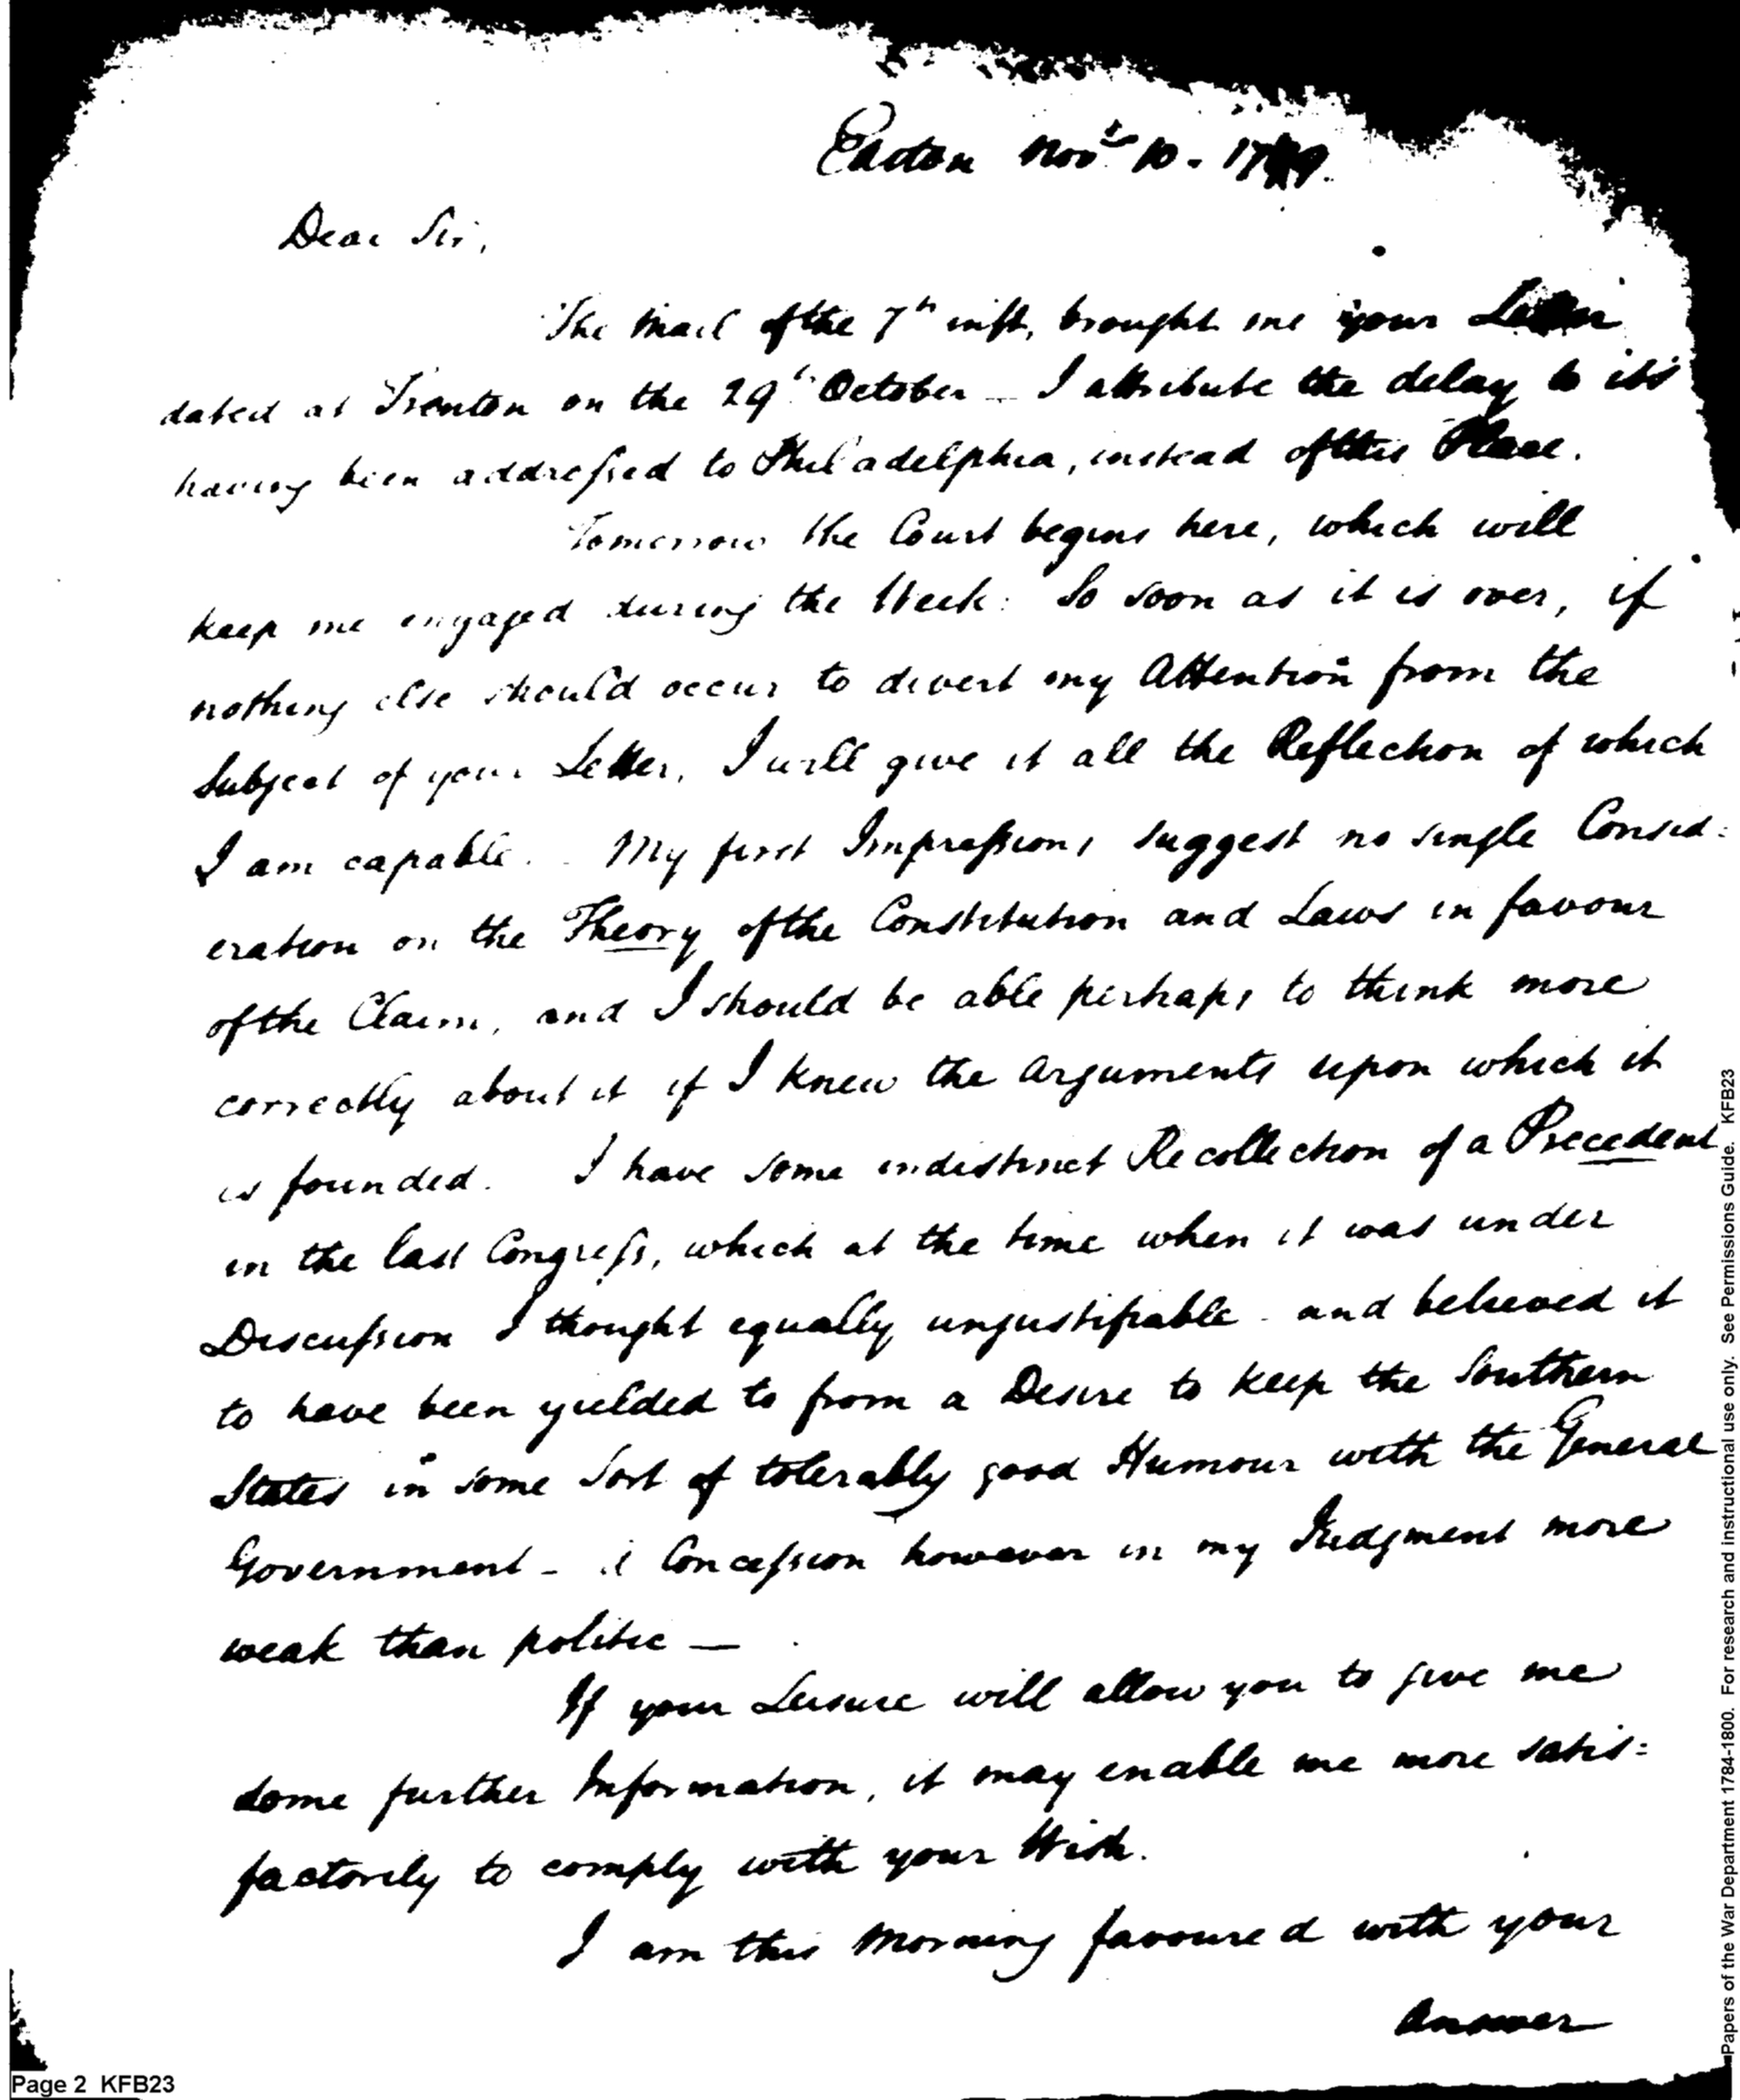 Easton Nov.r 10. 1799.
Dear Sir,
The Mail of the 7th inst, brought me your Letter
dated at Trenton on the 29th October — I attribute the delay to its
having been addressed to Philadelphia, instead of this Place.
Tomorrow the Court begins here, which will
keep me engaged during the Week: So soon as it is over, if
nothing else should occur to divert my Attention from the
Subject of your Letter, I will give it all the Reflection of which
I am capable. - My first Impressions suggest no single Consid=
eration on the Theory of the Constitution and Laws in favour
of the Claim, and I should be able perhaps to think more
correctly about it if I knew the Arguments upon which it
is founded. I have some indistinct Recollection of a Precedent
in the last Congress, which at the time when it was under
Discussion I thought equally unjustifiable - and believed it
to have been yielded to from a Desire to keep the Southern
States in some Sort of tolerably good Humour with the General
Government - a Concession however in my Judgment more
weak than politic —
If your Leisure will allow you to give me
some further Information, it may enable me more satis=
factorily to comply with your Wish.
I am this Morning favoured with your
Answer
Page 2 KFB23
Papers of the War Department 1784-1800. For research and instructional use only. See Permissions Guide. KFB23